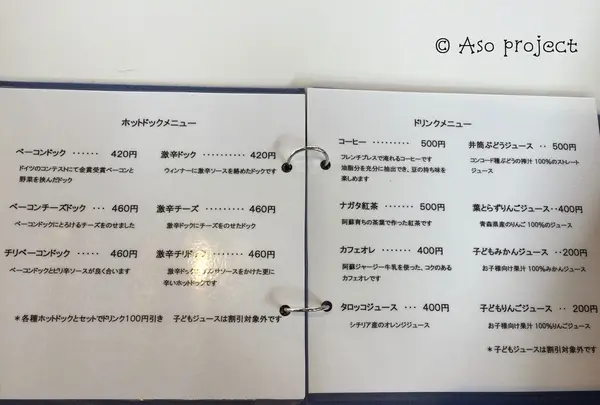 © Aso project
ホットドックメニュー
ベーコンドック ······ 420円
ドイツのコンテストにて金賞受賞ベーコンと
野菜を挟んだドック
ベーコンチーズドック ··· 460円
ベーコンドックにとろけるチーズをのせました
チリベーコンドック ···· 460円
ベーコンドックとピリ辛ソースが良く合います
激辛ドック ·········· 420円
ウィンナーに激辛ソースを絡めたドックです
激辛チーズ ·········· 460円
激辛ドックにチーズをのせたドック
激辛チリドック 460円
激辛ドックに ソースをかけた更に
辛いホットドックです
*各種ホットドックとセットでドリンク100円引き 子どもジュースは割引対象外です
ドリンクメニュー
コーヒー ·········· 500円
フレンチプレスで淹れるコーヒーです
油脂分を充分に抽出でき、豆の持ち味を
楽しめます
ナガタ紅茶 ········ 400円
阿蘇育ちの茶葉で作った紅茶です
カフェオレ ········ 400円
阿蘇ジャージー牛乳を使った、コクのある
カフェオレです
タロッコジュース ···· 400円
シチリア産のオレンジジュース
井筒ぶどうジュース ·· 500円
コンコード種ぶどうの搾汁 100%のストレート
ジュース
葉とらずりんごジュース··400円
青森県産のりんご 100%のジュース
子どもみかんジュース ··200円
お子様向け果汁 100%みかんジュース
子どもりんごジュース ·· 200円
お子様向け果汁 100%りんごジュース
*子どもジュースは割引対象外です